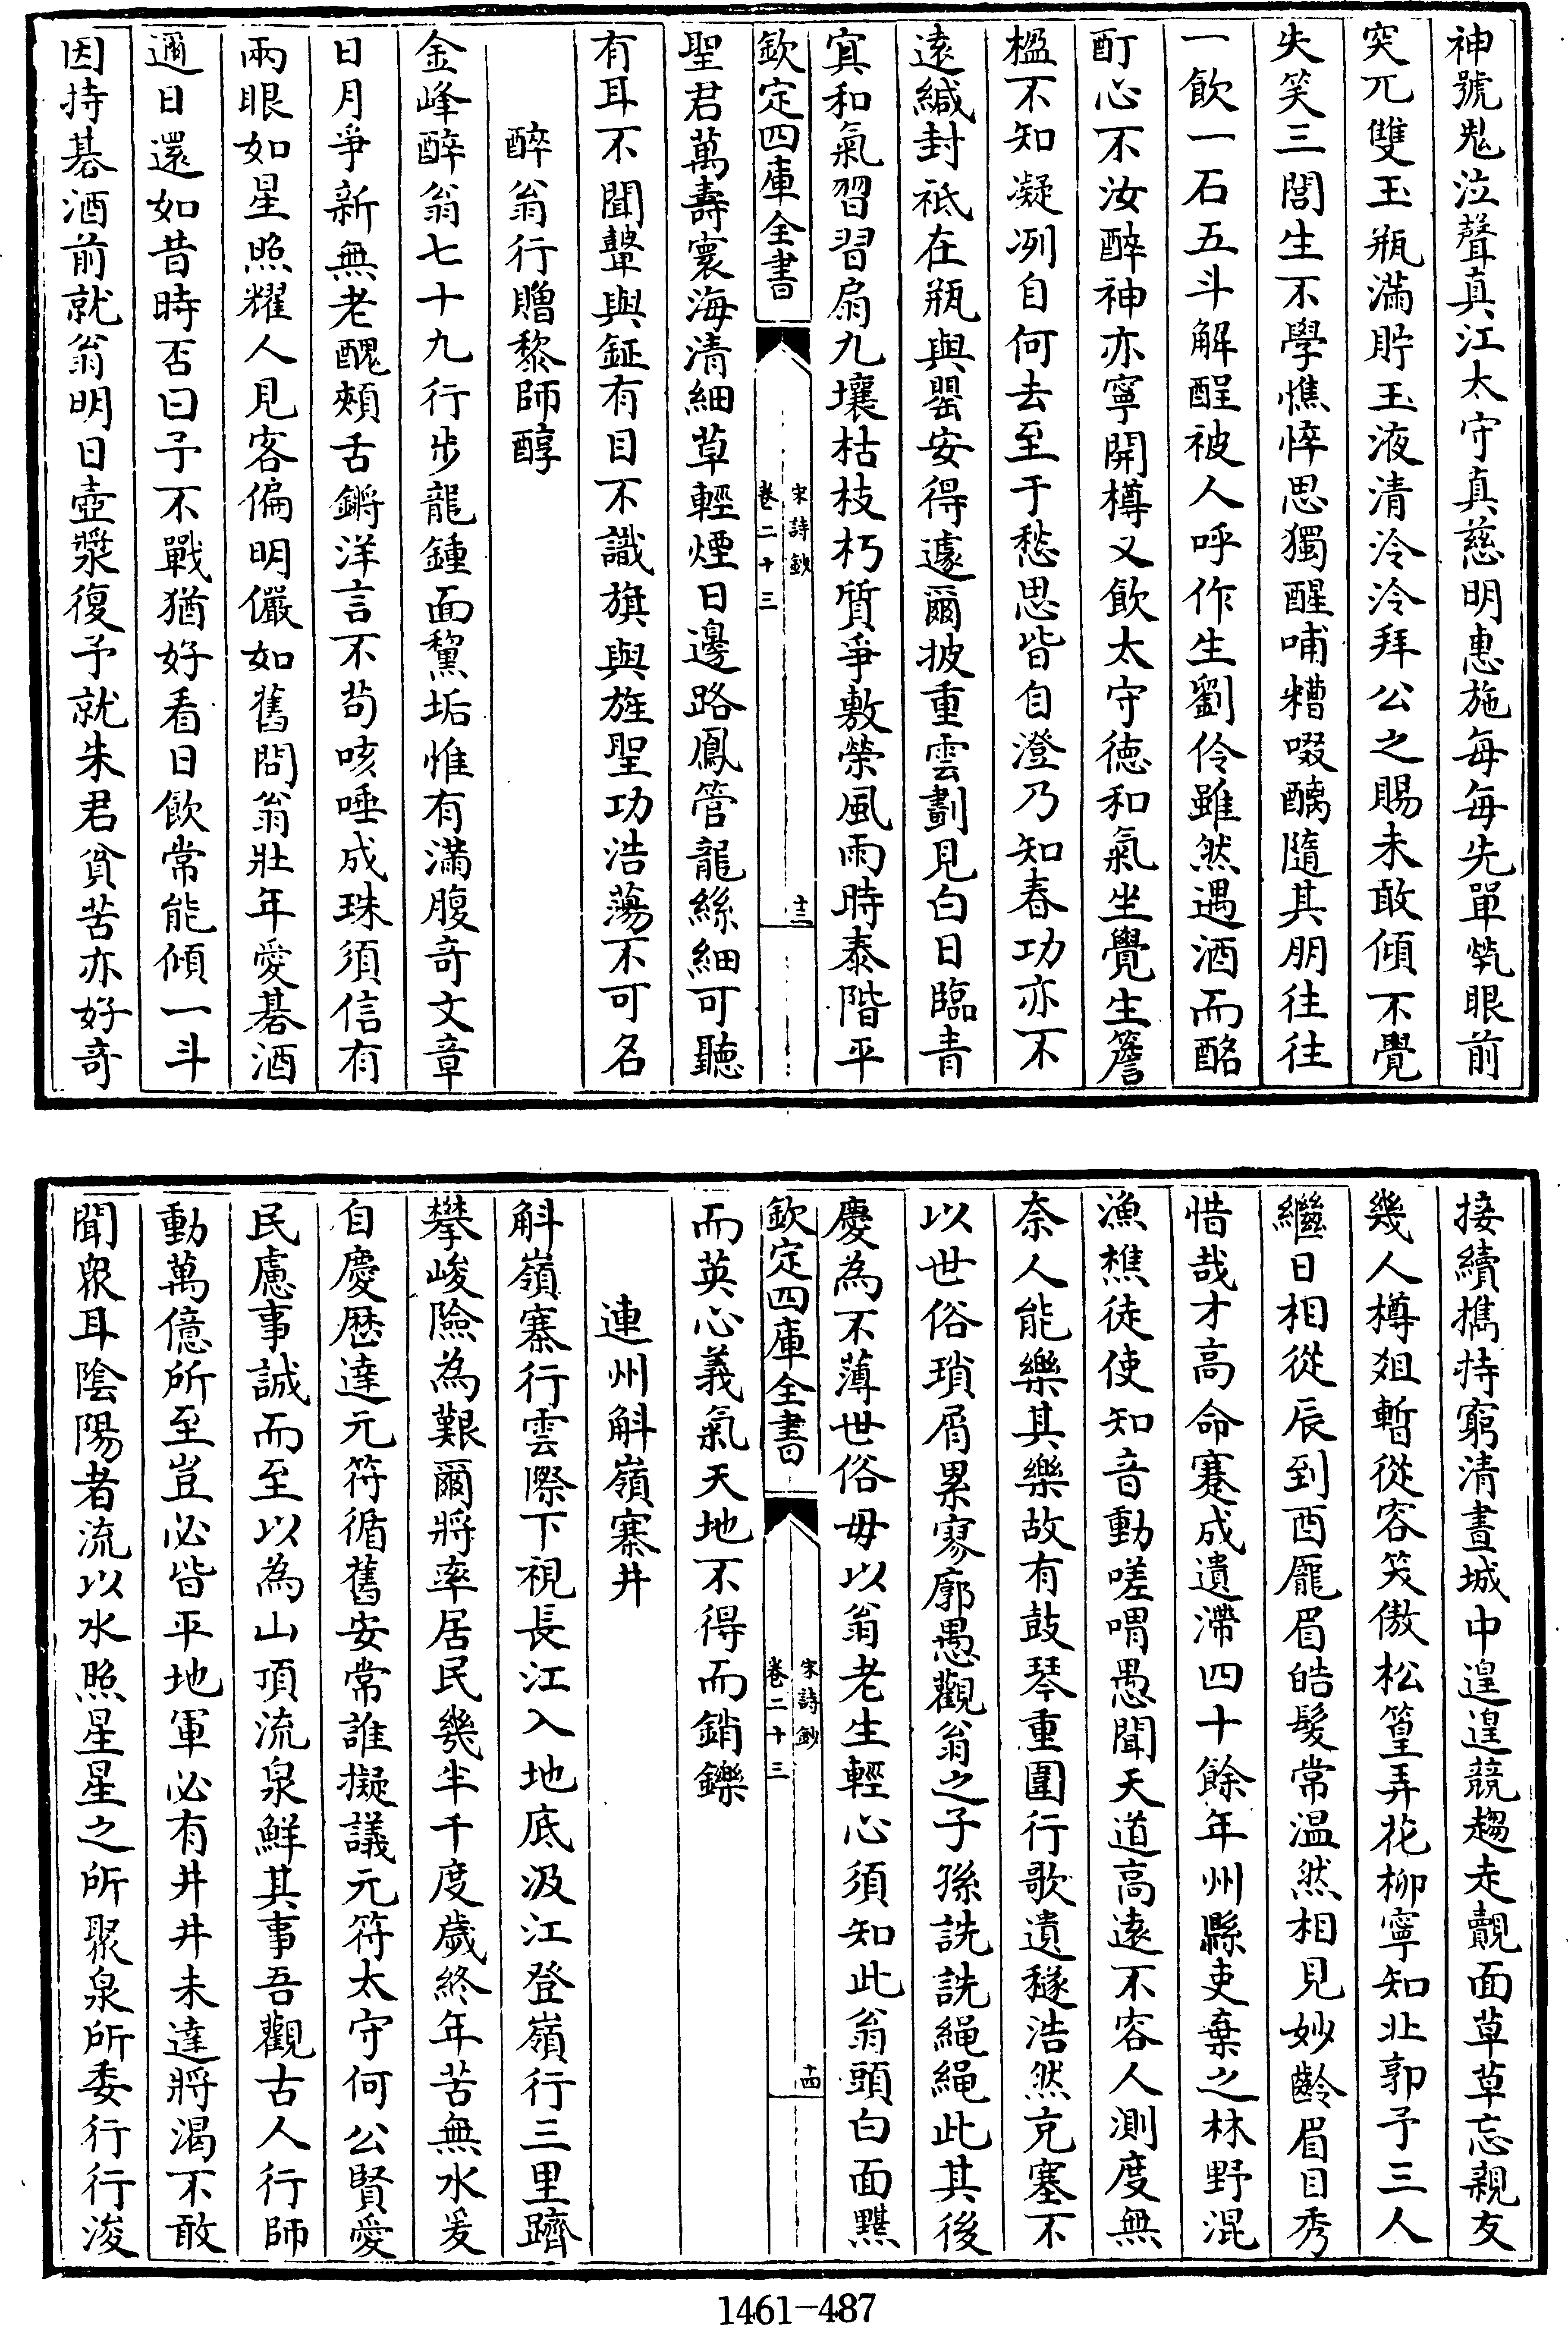 神號鬼泣聲真江太守真慈明惠施每每先單煢眼前
突兀雙玉瓶滿貯玉液清泠泠拜公之賜未敢傾不覺
失笑三閭生不學憔悴思獨醒哺糟啜醨隨其朋往往
一飲一石五斗解酲被人呼作生劉伶雖然遇酒而酩
酊心不汝醉神亦寧開樽又飲太守德和氣坐覺生簷
楹不知凝冽自何去至于愁思皆自澄乃知春功亦不
遠緘封祗在瓶與罌安得遽爾披重雲劃見白日臨青
寘和氣習習扇九壤枯枝朽質爭敷榮風雨時泰階平
欽定四庫全書
宋詩鈔
卷二十三
十三
聖君萬壽寰海清細草輕煙日邊路鳳管龍絲細可聽
有耳不聞鼙與鉦有目不識旗與旌聖功浩蕩不可名
醉翁行贈黎師醇
金峰醉翁七十九行步龍鍾面黧垢惟有滿腹奇文章
日月爭新無老醜頰舌鏘洋言不苟咳唾成珠須信有
兩眼如星照耀人見客偏明儼如舊問翁壯年愛碁酒
邇日還如昔時否曰予不戰猶好看日飲常能傾一斗
因持碁酒前就翁明日壺漿復予就朱君貧苦亦好奇
接續攜持窮清晝城中遑遑競趨走覿面草草忘親友
幾人樽爼暫從容笑傲松篁弄花柳寧知北郭予三人
繼日相從辰到酉龎眉皓髮常温然相見妙齡眉目秀
惜哉才高命蹇成遺滯四十餘年州縣吏棄之林野混
漁樵徒使知音動嗟喟愚聞天道高遠不容人測度無
奈人能樂其樂故有鼓琴重圍行歌遺穟浩然充塞不
以世俗瑣屑累寥廓愚觀翁之子孫詵詵繩繩此其後
慶為不薄世俗毋以翁老生輕心須知此翁頭白面黑
欽定四庫全書
宋詩鈔
卷二十三
十四
而英心義氣天地不得而銷鑠
連州斛嶺寨井
斛嶺寨行雲際下視長江入地底汲江登嶺行三里躋
攀峻險為艱爾將率居民幾半千度歲終年苦無水爰
自慶歴達元符循舊安常誰擬議元符太守何公賢愛
民慮事誠而至以為山頂流泉鮮其事吾觀古人行師
動萬億所至豈必皆平地軍必有井井未達將渴不敢
聞衆耳陰陽者流以水照星星之所聚泉所委行行浚
1461-487